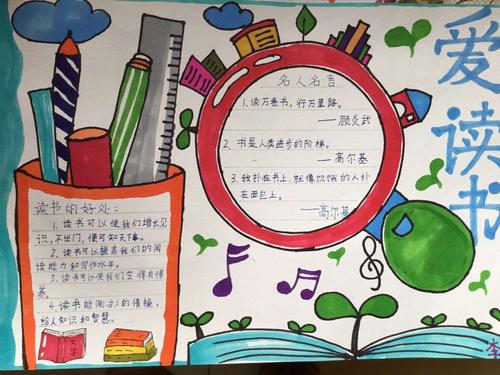 爱读书
名人名言
1、读万卷书，行万里路。
——顾炎武
2、书是人类进步的阶梯。
——高尔基
3、我扑在书上，就像饥饿的人扑
在面包上。
——高尔基
读书的好处：
1、读书可以使我们增长见
识，不出门，便可知天下事。
2、读书可以提高我们的阅
读能力和写作水平。
3、读书可以使我们变得有修
养。
4、读书能陶冶人的情操，
给人知识和智慧。
文学
李